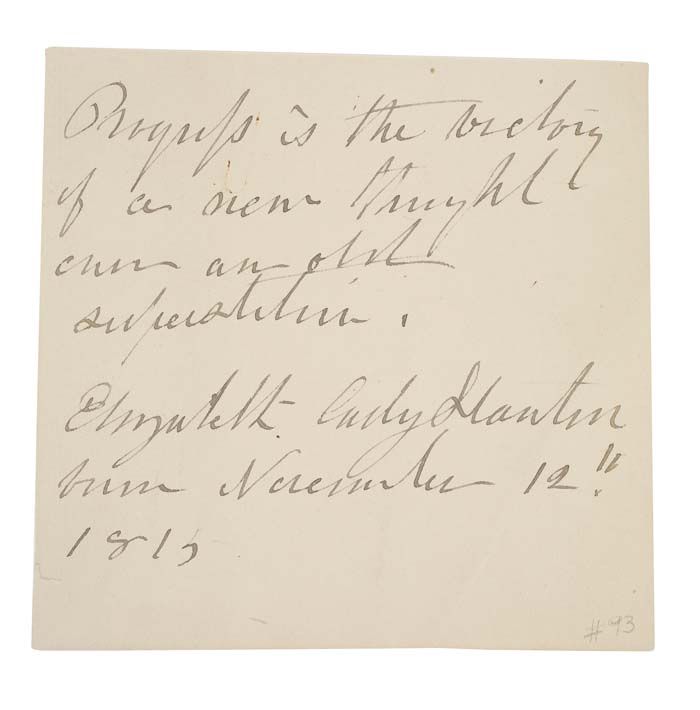 Progress is the victory
of a new thought
over an old
superstition.
Elizabeth Cady Stanton
born November 12."
1815
#93